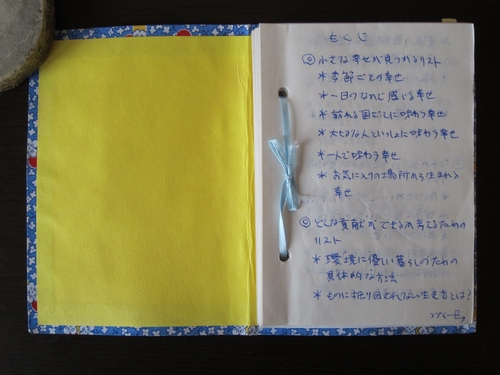 もくじ
◎ 小さな幸せが見つかるリスト
* 季節ごとの幸せ
* 一日のなかで感じる幸せ
* 訪れる国ごとに味わう幸せ
* 大切な人といっしょに味わう幸せ
* 一人で味わう幸せ
* お気に入りの場所から生まれる
幸せ
◎ どんな貢献ができるか考えるための
リスト
* 環境に優しい暮らしのための
具体的な方法
* ものに振り回されてない生き方とは?